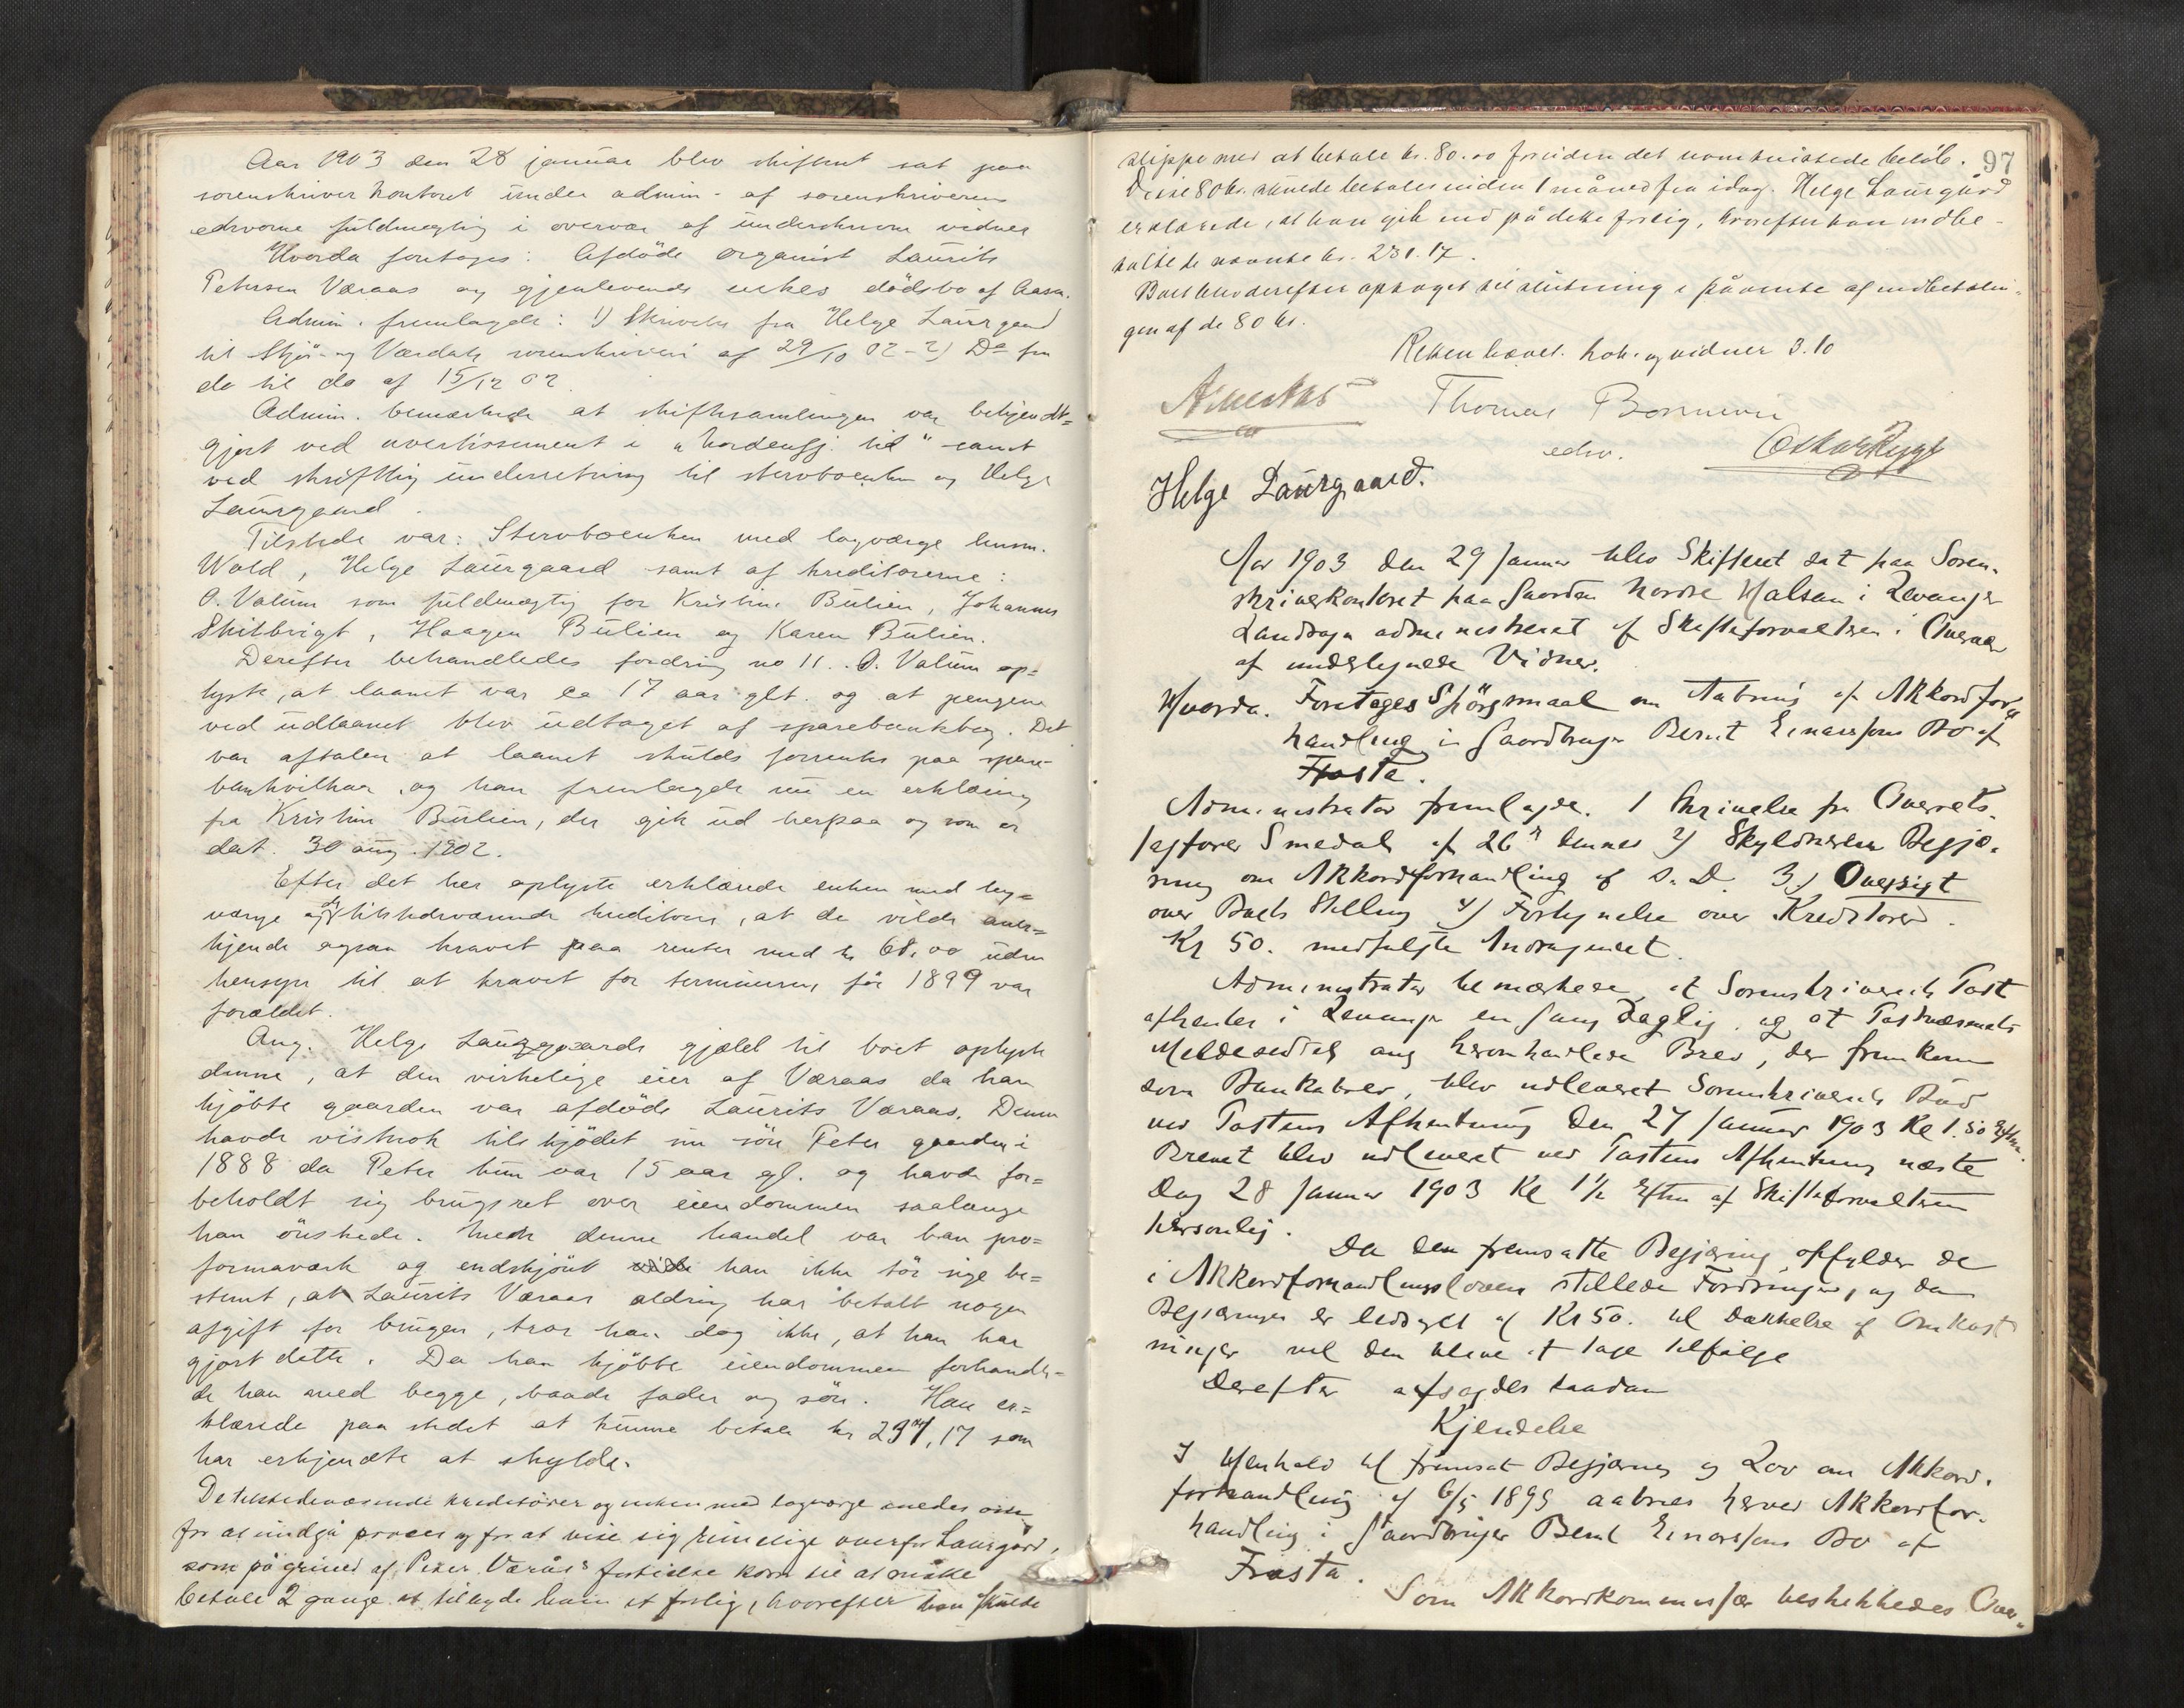 Aar 1903 den 28 januar blev skifteret sat paa
sorenskriverkontoret under admin. af sorenskriverens
edsvorne fuldmægtig i overvær af underskrevne vidner
Hvorda foretages: Afdöde organist Laurits
Petersen Væraas og gjenlevende enkes dödsbo af Aasen.
Admin. fremlagde: 1) Skrivelse fra Helge Laurgaard
til Stjör- og Værdals sorenskriveri af 29/10 02 - 2) Do fra
do til do af 15/12 02.
Admin. bemærkede at skiftesamlingen var bekjendt=
gjort ved avertissement i "Nordenfj. tid" samt
ved skriftlig underretning til stervboenken og Helge
Laurgaard.
Tilstede var: Stervboenken med lagværge husm.
Wold, Helge Laurgaard samt af kreditorerne:
O. Valum som fuldmægtig for Kristine Bülien, Johannes
Skilbrigt, Haagen Bülien og Karen Bülien.
Derefter behandledes fordring no 11. O. Valum op=
lyste, at laanet var ca 17 aar glt. og at pengene
ved udlaanet blev udtaget af sparebankbog. Det
var aftalen at laanet skulde forrentes paa spare-
bankvilkaar, og han fremlagde nu en erklæring
fra Kristine Bülien, der gik ud herpaa og som er
dat. 30 aug. 1902.
Efter det her oplyste erklærede enken med lag=
værge og de tilstedeværende kreditorer, at de vilde aner=
kjende ogsaa kravet paa renter med kr 68,00 uden
hensyn til at kravet for terminerne för 1899 var
forældet.
Ang. Helge Laurgaards gjæld til boet oplyste
denne, at den virkelige eier af Væraas da han
kjöbte gaarden var afdöde Laurits Væraas. Denne
havde vistnok tilskjödet sin sön Peter gaarden i
1888 da Peter kun var 15 aar gl. og havde for=
beholdt sig brugsret over eiendommen saalænge
han önskede. Men denne handel var bare pro=
formaværk og endskjönt han ikke tör sige be=
stemt, at Laurits Væraas aldrig har betalt nogen
afgift for brugen, tror han dog ikke, at han har
gjort dette. Da han kjöbte eiendommen forhandle=
de han med begge, baade fader og sön. Han er=
klærede paa stedet at kunne betale kr 231,17 som
har erkjendte at skylde.
De tilstedeværende kreditorer og enken med lagværge enedes om
for at undgå proces og for at vise sig rimelige overfor Laurgård,
som på grund af Peter Værås's forhold kom til at måtte
betale 2 gange at tilbyde ham et forlig, hvorefter han skulde
97
slippe med at betale kr. 80.00 foruden det uomtvistede belöb.
Disse 80 kr. skulde betales inden 1 måned fra idag. Helge Laurgård
erklærede, at han gik ind på dette forlig, hvorefter han indbe-
talte de nævnte kr. 231.17.
Boet blev derefter optaget til slutning i påvente af indbetalin-
gen af de 80 kr.
Retten hævet. Prot. og vidner 3.10
Thomas Bonnevie
edsv.
Helge Laurgaard.
Aar 1903 den 29 Januar blev Skifteret sat paa Soren-
skriverkontoret paa Gaarden Nordre Halsan i Levanger
Landsogn administreret af Skifteforvalteren i Overvær
af undertegnede Vidner.
Hvorda. Foretages Spörgsmaal om Aabning af Akkordfor-
handling i Gaardbruger Bernt Einarssons Bo af
Frosta.
Administrator fremlagde. 1 Skrivelse fra Overrets-
sagförer Smedal af 26d dennes 2) Skyldnerens Begjæ-
ring om Akkordforhandling af s. D. 3) Oversigt
over Boets Stilling 4) Fortegnelse over Kreditorer.
Kr 50. medfulgte Andragendet.
Administrator bemærkede, at Sorenskriverens Post
afhentes i Levanger en Gang daglig, og at Postvæsenets
Meldeseddel ang heromhandlede Brev, der fremkom
som Bankobrev, blev udleveret Sorenskriverens Bud
ved Postens Afhentning den 27 Januar 1903 Kl 1.50 Eftm.
Brevet blev udleveret ved Postens Afhentning næste
Dag 28 Januar 1903 Kl 1½ Eftm af Skifteforvalteren
personlig.
Da den fremsatte Begjæring opfylder de
i Akkordforhandlingsloven stillede Fordringer, og da
Begjæringen er ledsaget af Kr 50. til Dækkelse af Omkost
ninger vil den blive at tage tilfölge
Derefter afsagdes saadan
Kjendelse
I Henhold til fremsat Begjæring og Lov om Akkord-
forhandling af 6/5 1899 aabnes herved Akkordfor-
handling i Gaardbruger Bernt Einarssons Bo af
Frosta.
Som Akkordkommissær beskikkedes Over-